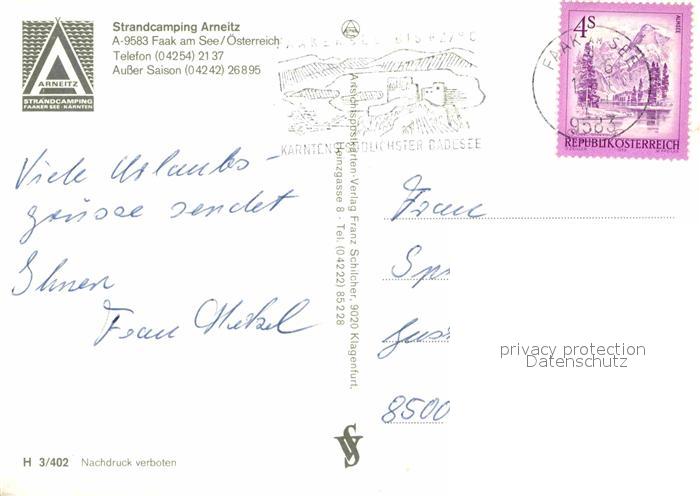 Strandcamping Arneitz
A-9583 Faak am See/Österreich
Telefon (04254) 2137
Außer Saison (04242) 26895
ARNEITZ
STRANDCAMPING
FAAKER SEE · KÄRNTEN
KÄRNTENS SÜDLICHSTER BADESEE
FAAK AM SEE
9583
4S
ALMSEE
REPUBLIK ÖSTERREICH
Viele Urlaubs-
grüsse sendet
Ihnen
Frau
Ansichtspostkarten-Verlag Franz Schilcher, 9020 Klagenfurt,
Heinzgasse 8 - Tel. (04222) 85228
Frau
8500
privacy protection
Datenschutz
H 3/402 Nachdruck verboten